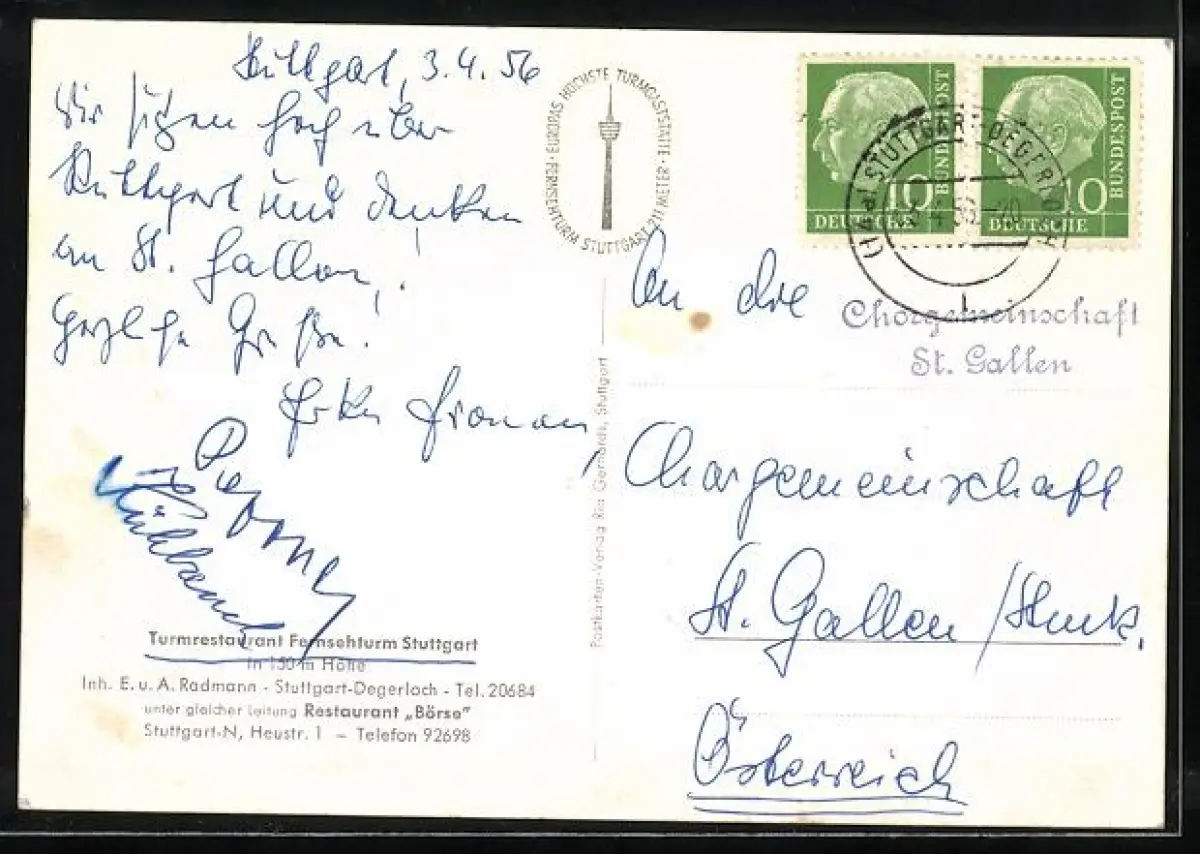 Stuttgart, 3.4.56
Wir sitzen hoch über
Stuttgart und denken
an St. Gallen!
Herzliche Grüße!
Turmrestaurant Fernsehturm Stuttgart
in 150 m Höhe
Inh. E. u. A. Radmann - Stuttgart-Degerloch - Tel. 20684
unter gleicher Leitung Restaurant „Börse"
Stuttgart-N, Heustr. 1 – Telefon 92698
FERNSEHTURM STUTTGART 211 METER · EUROPAS HÖCHSTE TURMGASTSTÄTTE ·
Postkarten-Verlag Ria Gerhards, Stuttgart
10
DEUTSCHE
BUNDESPOST
10
DEUTSCHE
BUNDESPOST
(14a) STUTTGART-DEGERLOCH
An die
Chorgemeinschaft
St. Gallen
Chorgemeinschaft
St. Gallen /Stmk.
Österreich